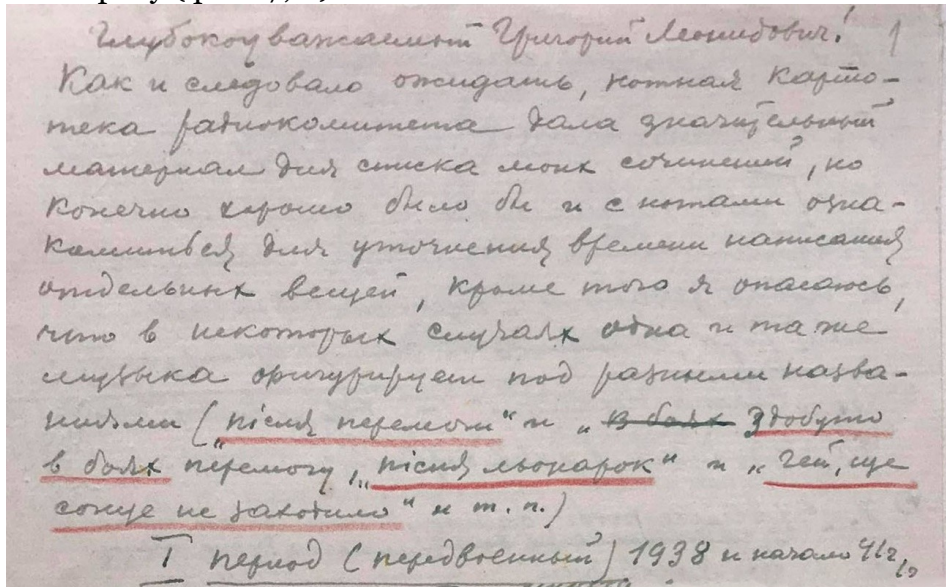 Глубокоуважаемый Григорий Леонидович! 1
Как и следовало ожидать, нотная карто-
тека радиокомитета дала значительный
материал для списка моих сочинений, но
конечно хорошо было бы и с нотами озна-
комиться для уточнения времени написания
отдельных вещей, кроме того я опасаюсь,
что в некоторых случаях одна и та же
музыка фигурирует под разными назва-
ниями („пісня перемоги“ и „в боях здобуто
в боях перемогу, „пісня льонарок“ и „гей, ще
сонце не заходило“ и т. п.)
I период (передвоенный) 1938 и начало 41 г.